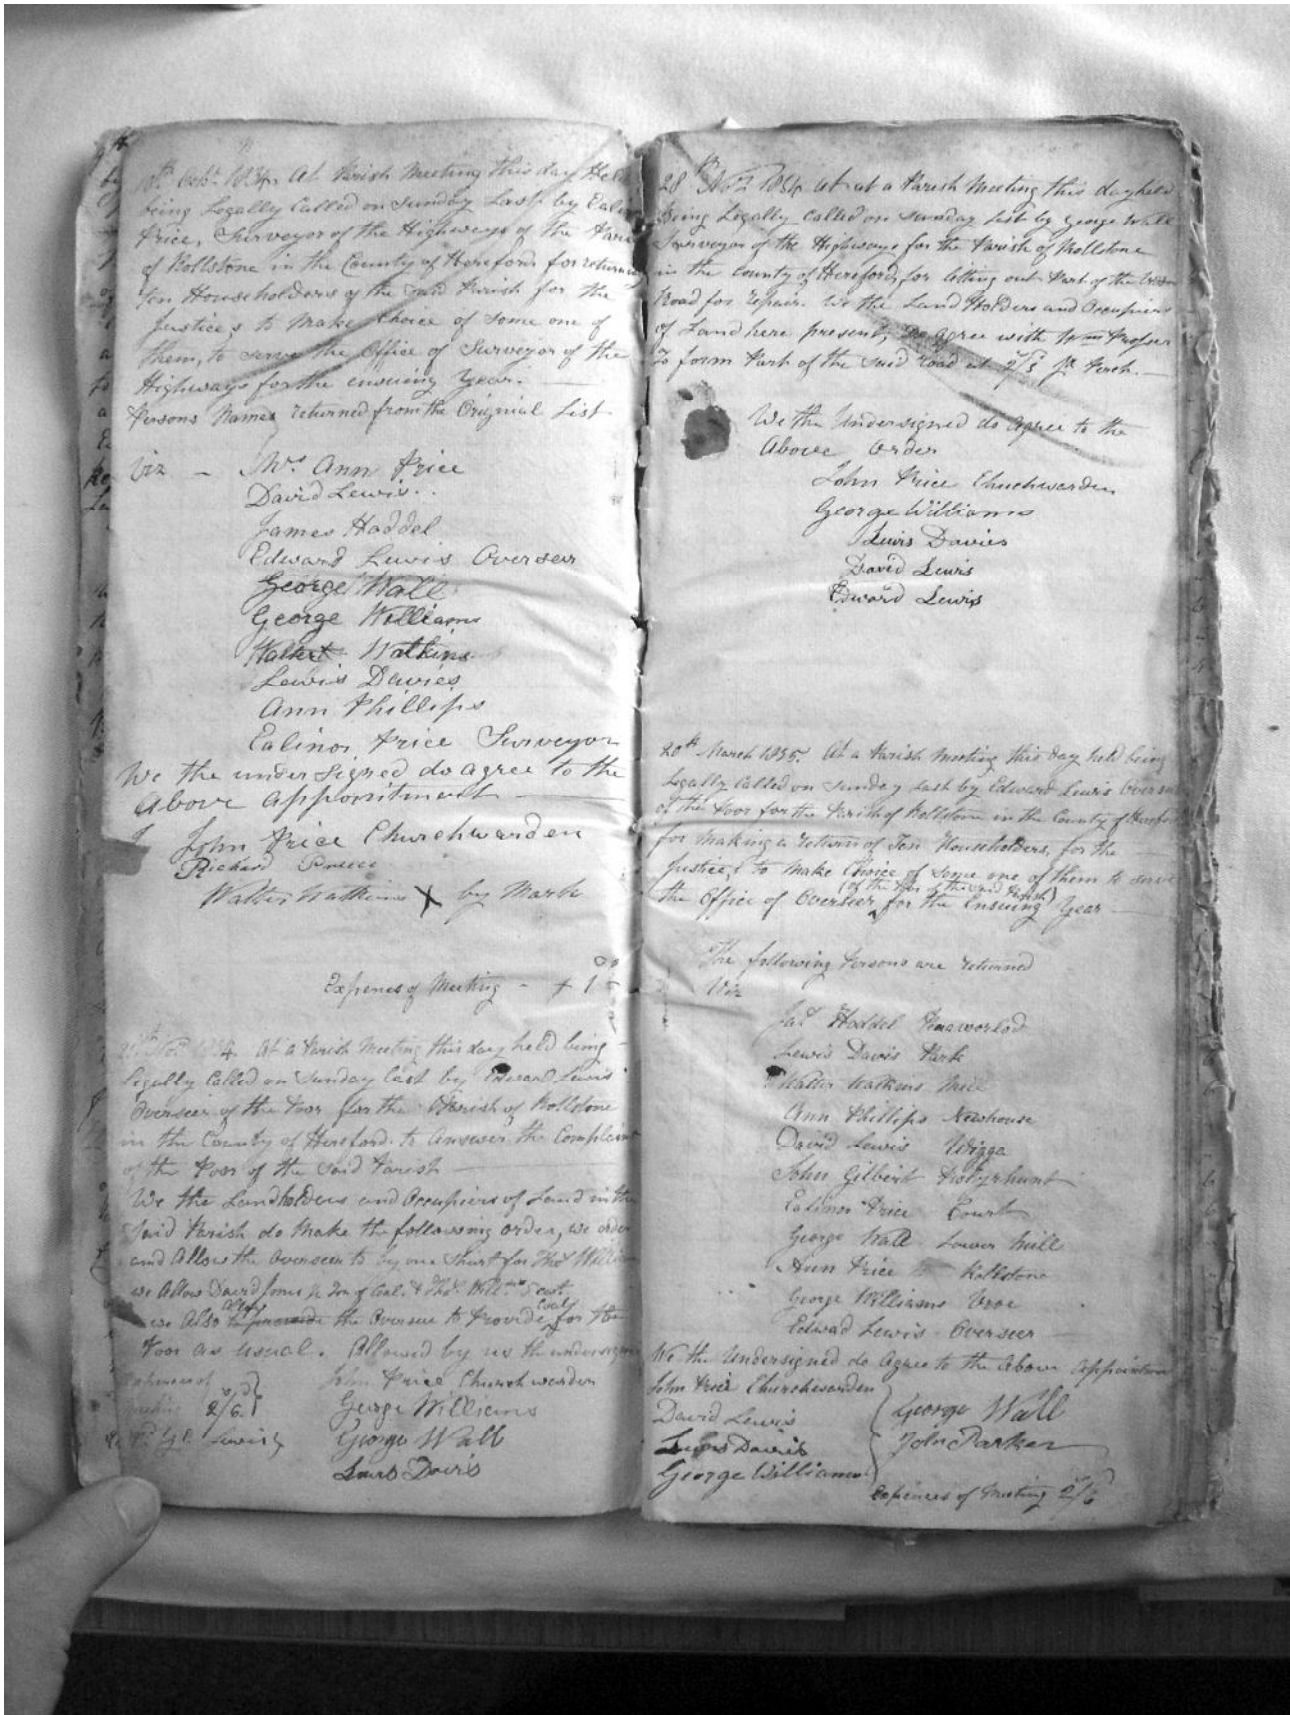 10th Octr. 1834. At Parish Meeting this day Held
being Legally Called on Sunday Last by Ealinor
Price, Surveyor of the Highways of the Parish
of Rollstone in the County of Hereford for returning
Ten Householders of the said Parish for the
Justices to Make Choice of some one of
them, to serve the Office of Surveyor of the
Highways for the ensuing Year. —
Persons Names returned from the Original List
Viz — Mrs. Ann Price
David Lewis..
James Haddel
Edward Lewis Overseer
George Wall
George Williams
Walter Watkins
Lewis Davies
Ann Phillips
Ealinor Price Surveyor
We the under Signed do agree to the
Above appointment —
John Price Churchwarden
Richard
Walter Watkins X by Mark
Expences of Meeting - 1
1834. At a Parish Meeting this day held being
Legally Called on Sunday last by Edward Lewis
Overseer of the Poor for the Parish of Rollstone
in the County of Hereford. to Answer the Complaint
of the Poor of the Said Parish —
We the Landholders and Occupiers of Land in the
Said Parish do Make the following order, we order
and Allow the Overseer to by one Shirt for Thos.
we Allow David Jones pr Ton of Coal. & Thos. Willms. Do
we Also Allow the Overseer to Provide Coal for the
Poor as usual. Allowed by us the undersigned
Expences of John Price Churchwarden
Meeting 2/6. George Williams
Lewis George Wall
Lewis Davis
28th Novr. 1834 At at a Parish Meeting this day held
Being Legally Called on Sunday last by George Wall
Surveyor of the Highways for the Parish of Rollstone
in the County of Hereford, for letting out Part of the
Road for repair. We the Land Holders and Occupiers
of Land here present, Do agree with Wm Prosser
to form Part of the Said road at 2/3 pr Perch. —
We the Undersigned do Agree to the
Above Order
John Price Chuchwarden
George Williams
Lewis Davies
David Lewis
Edward Lewis
20th March 1835. At a Parish Meeting this day held being
Legally Called on Sunday Last by Edward Lewis Overseer
of the Poor for the Parish of Rollstone in the County of Hereford
for Making a return of Ten Householders, for the
Justices to Make Choice of some one of them to serve
(of the Poor of the said Parish)
the Office of Overseer for the Ensuing Year —
The following Persons are returned
Viz
Jas. Haddel
Lewis Davis Park
Walter Watkins Mill
Ann Phillips Newhouse
David Lewis Wigga
John Gilbert
Ealinor Price Court
George Wall Lower Mill
Ann Price Rollstone
George Williams Vroe
Edwad Lewis Overseer
We the Undersigned do Agree to the Above Appointment
John Price Churchwarden
David Lewis George Wall
Lewis Davis John Parker
George Williams
Expences of Meeting 2/6